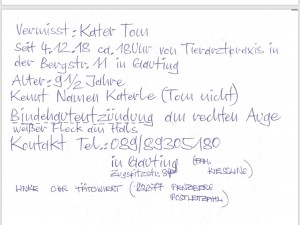 Vermisst: Kater Tom
seit 4.12.18 ca. 18Uhr von Tierarztpraxis in
der Bergstr. 11 in Gauting
Alter: 9 1/2 Jahre
Kennt Namen Katerle (Tom nicht)
Bindehautentzündung am rechten Auge
weißer Fleck am Hals
Kontakt Tel.: 089/89305180
in Gauting (FAM.
Zugspitzstr. KIESSLING)
LINKE OHR TÄTOWIERT
POSTLEITZAHL)